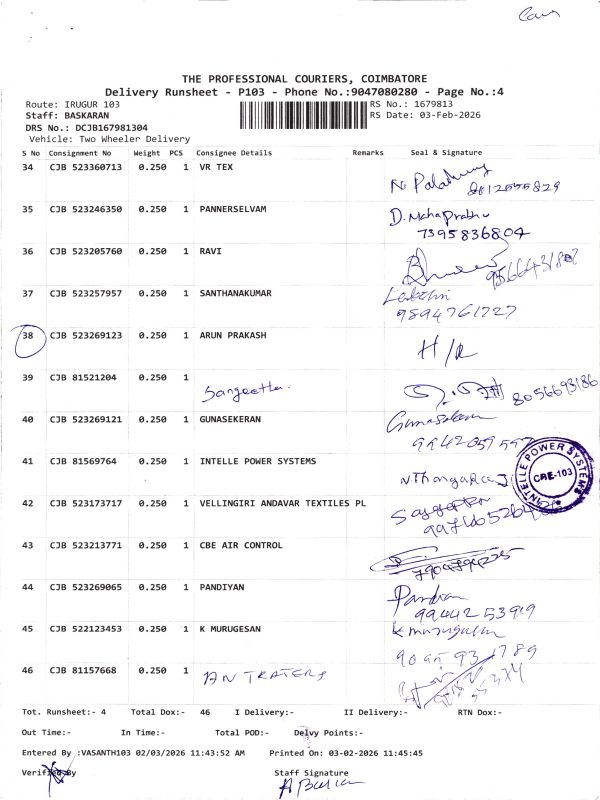 THE PROFESSIONAL COURIERS, COIMBATORE
Delivery Runsheet - P103 - Phone No.:9047080280 - Page No.:4
Route: IRUGUR 103 RS No.: 1679813
Staff: BASKARAN RS Date: 03-Feb-2026
DRS No.: DCJB167981304
Vehicle: Two Wheeler Delivery
S No Consignment No Weight PCS Consignee Details Remarks Seal & Signature
34 CJB 523360713 0.250 1 VR TEX
35 CJB 523246350 0.250 1 PANNERSELVAM D. Mahaprabhu
7395836804
36 CJB 523205760 0.250 1 RAVI
37 CJB 523257957 0.250 1 SANTHANAKUMAR
9894761727
38 CJB 523269123 0.250 1 ARUN PRAKASH H/R
39 CJB 81521204 0.250 1 Sangeetha. 8056693186
40 CJB 523269121 0.250 1 GUNASEKERAN Gunasekaran
41 CJB 81569764 0.250 1 INTELLE POWER SYSTEMS N Thangaraj
INTELLE POWER SYSTEMS
CBE-103
42 CJB 523173717 0.250 1 VELLINGIRI ANDAVAR TEXTILES PL
43 CJB 523213771 0.250 1 CBE AIR CONTROL
44 CJB 523269065 0.250 1 PANDIYAN Pandian
9944253919
45 CJB 522123453 0.250 1 K MURUGESAN K murugesan
46 CJB 81157668 0.250 1 AN TRATERS
Tot. Runsheet:- 4 Total Dox:- 46 I Delivery:- II Delivery:- RTN Dox:-
Out Time:- In Time:- Total POD:- Delvy Points:-
Entered By :VASANTH103 02/03/2026 11:43:52 AM Printed On: 03-02-2026 11:45:45
Verified By Staff Signature